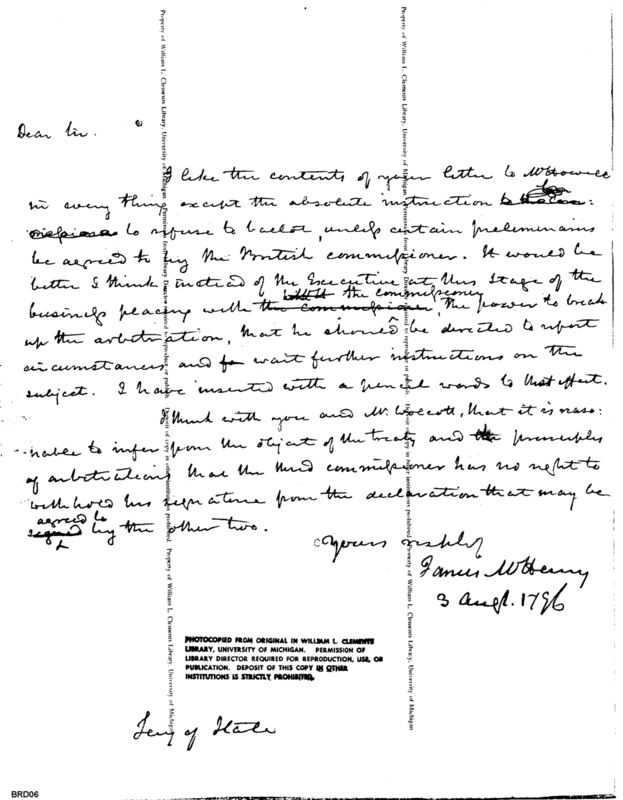 Dear Sir.
I like the contents of your letter to Mr Howell
in every thing except the absolute instruction
to refuse to ballot, unless certain preliminaries
be agreed to by the British commissioner. It would be
better I think instead of the Executive at this stage of the
business placing with the commissioner the power to break
up the arbitration, that he should be directed to report
circumstances and wait further instructions on the
subject. I have inserted with a pencil words to that effect.
I think with you and Mr. Wolcott, that it is reaso:
nable to infer from the object of the treaty and the principles
of arbitrations that the third commissioner has no right to
withhold his signature from the declaration that may be
agreed to
signed by the other two.
Yours
James McHenry
3 Augt. 1796
PHOTOCOPIED FROM ORIGINAL IN WILLIAM L. CLEMENTS
LIBRARY, UNIVERSITY OF MICHIGAN. PERMISSION OF
LIBRARY DIRECTOR REQUIRED FOR REPRODUCTION, USE, OR
PUBLICATION. DEPOSIT OF THIS COPY IN OTHER
INSTITUTIONS IS STRICTLY PROHIBITED.
Secy of State
BRD06
Property of William L. Clements Library, University of Michigan
Property of William L. Clements Library, University of Michigan